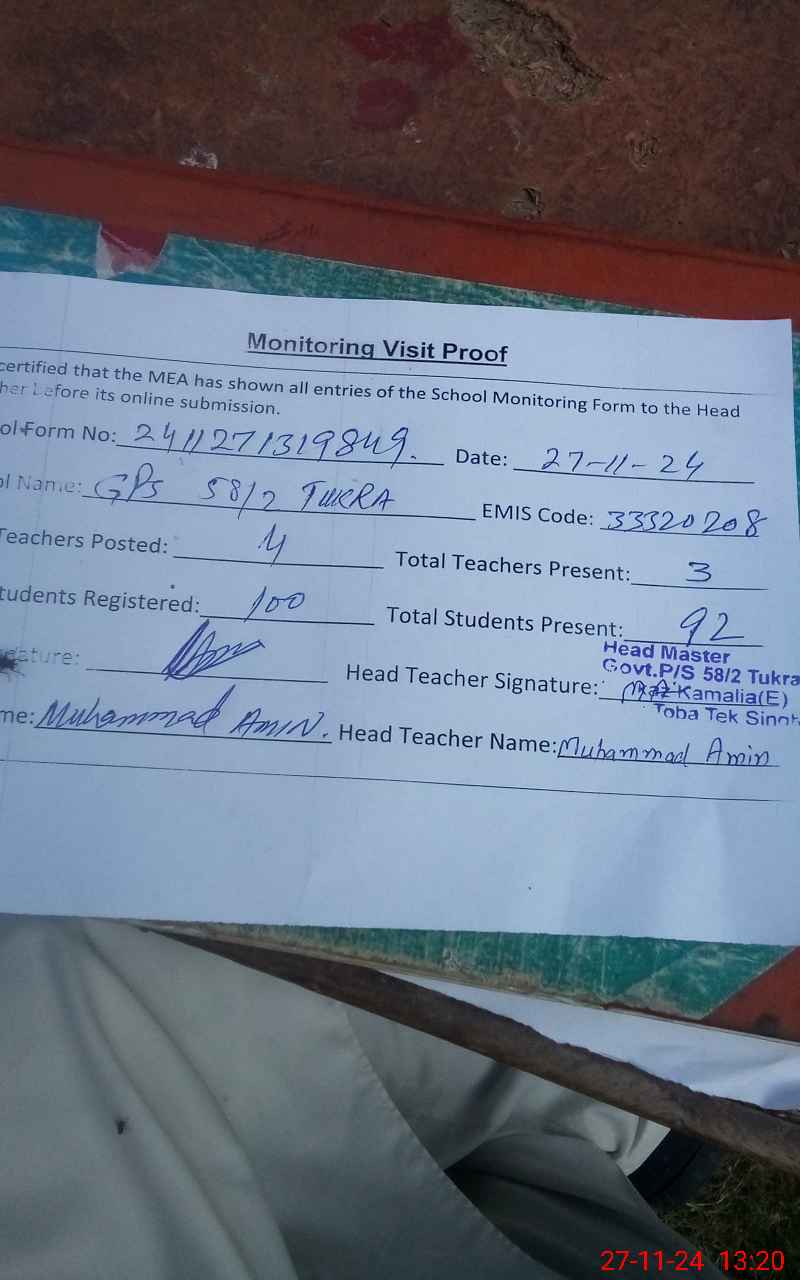 Monitoring Visit Proof
certified that the MEA has shown all entries of the School Monitoring Form to the Head
her before its online submission.
ol Form No: 2411271319849. Date: 27-11-24
ol Name: GPS 58/2 TUKRA EMIS Code: 33320208
Teachers Posted: 4 Total Teachers Present: 3
tudents Registered: 100 Total Students Present: 92
Head Master
Govt.P/S 58/2 Tukra
ature: Head Teacher Signature: Kamalia(E)
Toba Tek Singh
me: Muhammad AMIN. Head Teacher Name: Muhammad Amin
27-11-24 13:20